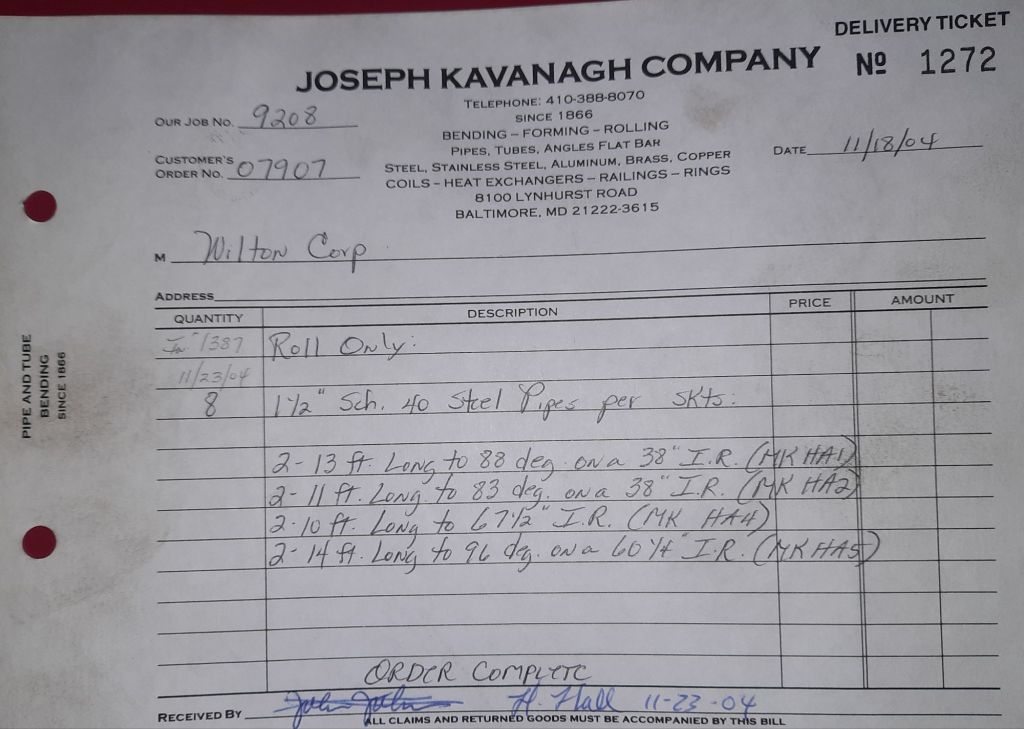 DELIVERY TICKET
JOSEPH KAVANAGH COMPANY
Nº 1272
TELEPHONE: 410-388-8070
SINCE 1866
BENDING – FORMING – ROLLING
PIPES, TUBES, ANGLES FLAT BAR
STEEL, STAINLESS STEEL, ALUMINUM, BRASS, COPPER
COILS – HEAT EXCHANGERS – RAILINGS – RINGS
8100 LYNHURST ROAD
BALTIMORE, MD 21222-3615
OUR JOB NO. 9208
CUSTOMER'S
ORDER NO. 07907
DATE 11/18/04
M Wilton Corp
ADDRESS
QUANTITY DESCRIPTION PRICE AMOUNT
1387 Roll Only:
11/23/04
8 1½" Sch. 40 Steel Pipes per SKts:
2- 13 ft. Long to 88 deg. on a 38" I.R. (MK HA1)
2- 11 ft. Long to 83 deg. on a 38" I.R. (MK HA2)
2- 10 ft. Long to 67½" I.R. (MK HA4)
2- 14 ft. Long to 96 deg. on a 60¼" I.R. (MK HA5)
ORDER COMPLETE
RECEIVED BY H. Hall 11-23-04
ALL CLAIMS AND RETURNED GOODS MUST BE ACCOMPANIED BY THIS BILL
PIPE AND TUBE
BENDING
SINCE 1866